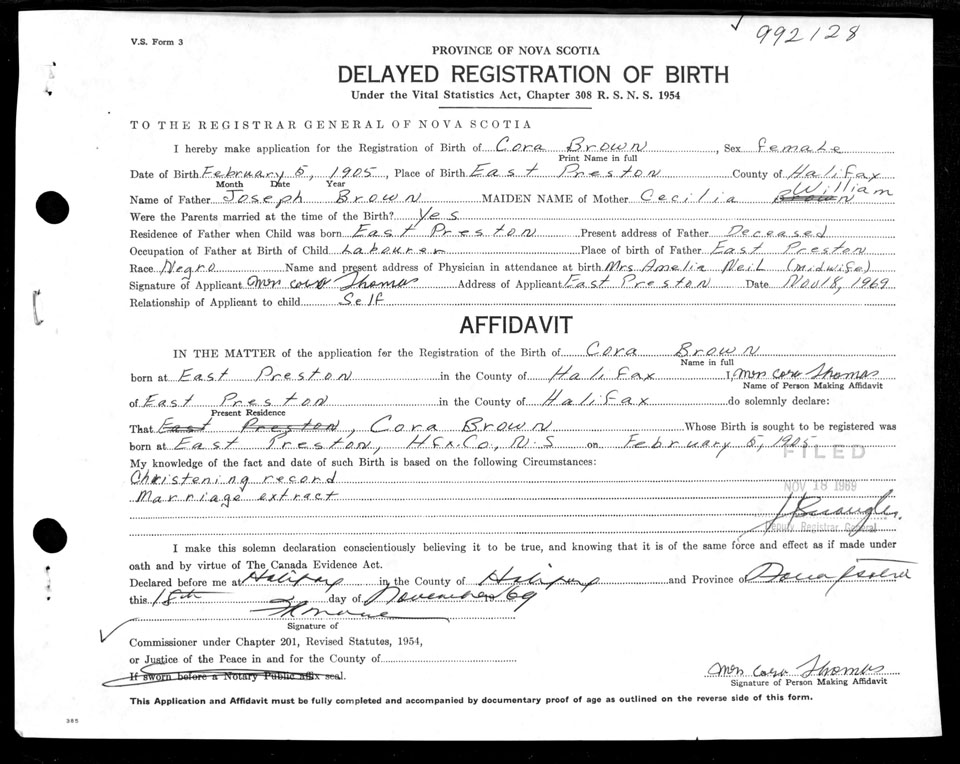 992128
V.S. Form 3
PROVINCE OF NOVA SCOTIA
DELAYED REGISTRATION OF BIRTH
Under the Vital Statistics Act, Chapter 308 R. S. N. S. 1954
TO THE REGISTRAR GENERAL OF NOVA SCOTIA
I hereby make application for the Registration of Birth of Cora Brown, Sex female
Print Name in full
Date of Birth February 5, 1905, Place of Birth East Preston County of Halifax
Month Date Year
William
Name of Father Joseph Brown MAIDEN NAME of Mother Cecilia Brown
Were the Parents married at the time of the Birth? Yes
Residence of Father when Child was born East Preston Present address of Father Deceased
Occupation of Father at Birth of Child Labourer Place of birth of Father East Preston
Race Negro Name and present address of Physician in attendance at birth Mrs Amelia Neil (midwife)
Signature of Applicant Mrs Cora Thomas Address of Applicant East Preston Date Nov 18, 1969
Relationship of Applicant to child Self
AFFIDAVIT
IN THE MATTER of the application for the Registration of the Birth of Cora Brown
Name in full
born at East Preston in the County of Halifax I, Mrs Cora Thomas
Name of Person Making Affidavit
of East Preston in the County of Halifax do solemnly declare:
Present Residence
That East Preston, Cora Brown Whose Birth is sought to be registered was
born at East Preston, Hfx. Co., N. S on February 5, 1905
FILED
My knowledge of the fact and date of such Birth is based on the following Circumstances:
Christening record
NOV 18 1969
Marriage extract
Deputy Registrar General
I make this solemn declaration conscientiously believing it to be true, and knowing that it is of the same force and effect as if made under
oath and by virtue of The Canada Evidence Act.
Declared before me at Halifax in the County of Halifax and Province of Nova Scotia
this 18th day of November 1969
Signature of
Commissioner under Chapter 201, Revised Statutes, 1954,
or Justice of the Peace in and for the County of
If sworn before a Notary Public affix seal.
Mrs Cora Thomas
Signature of Person Making Affidavit
This Application and Affidavit must be fully completed and accompanied by documentary proof of age as outlined on the reverse side of this form.
385